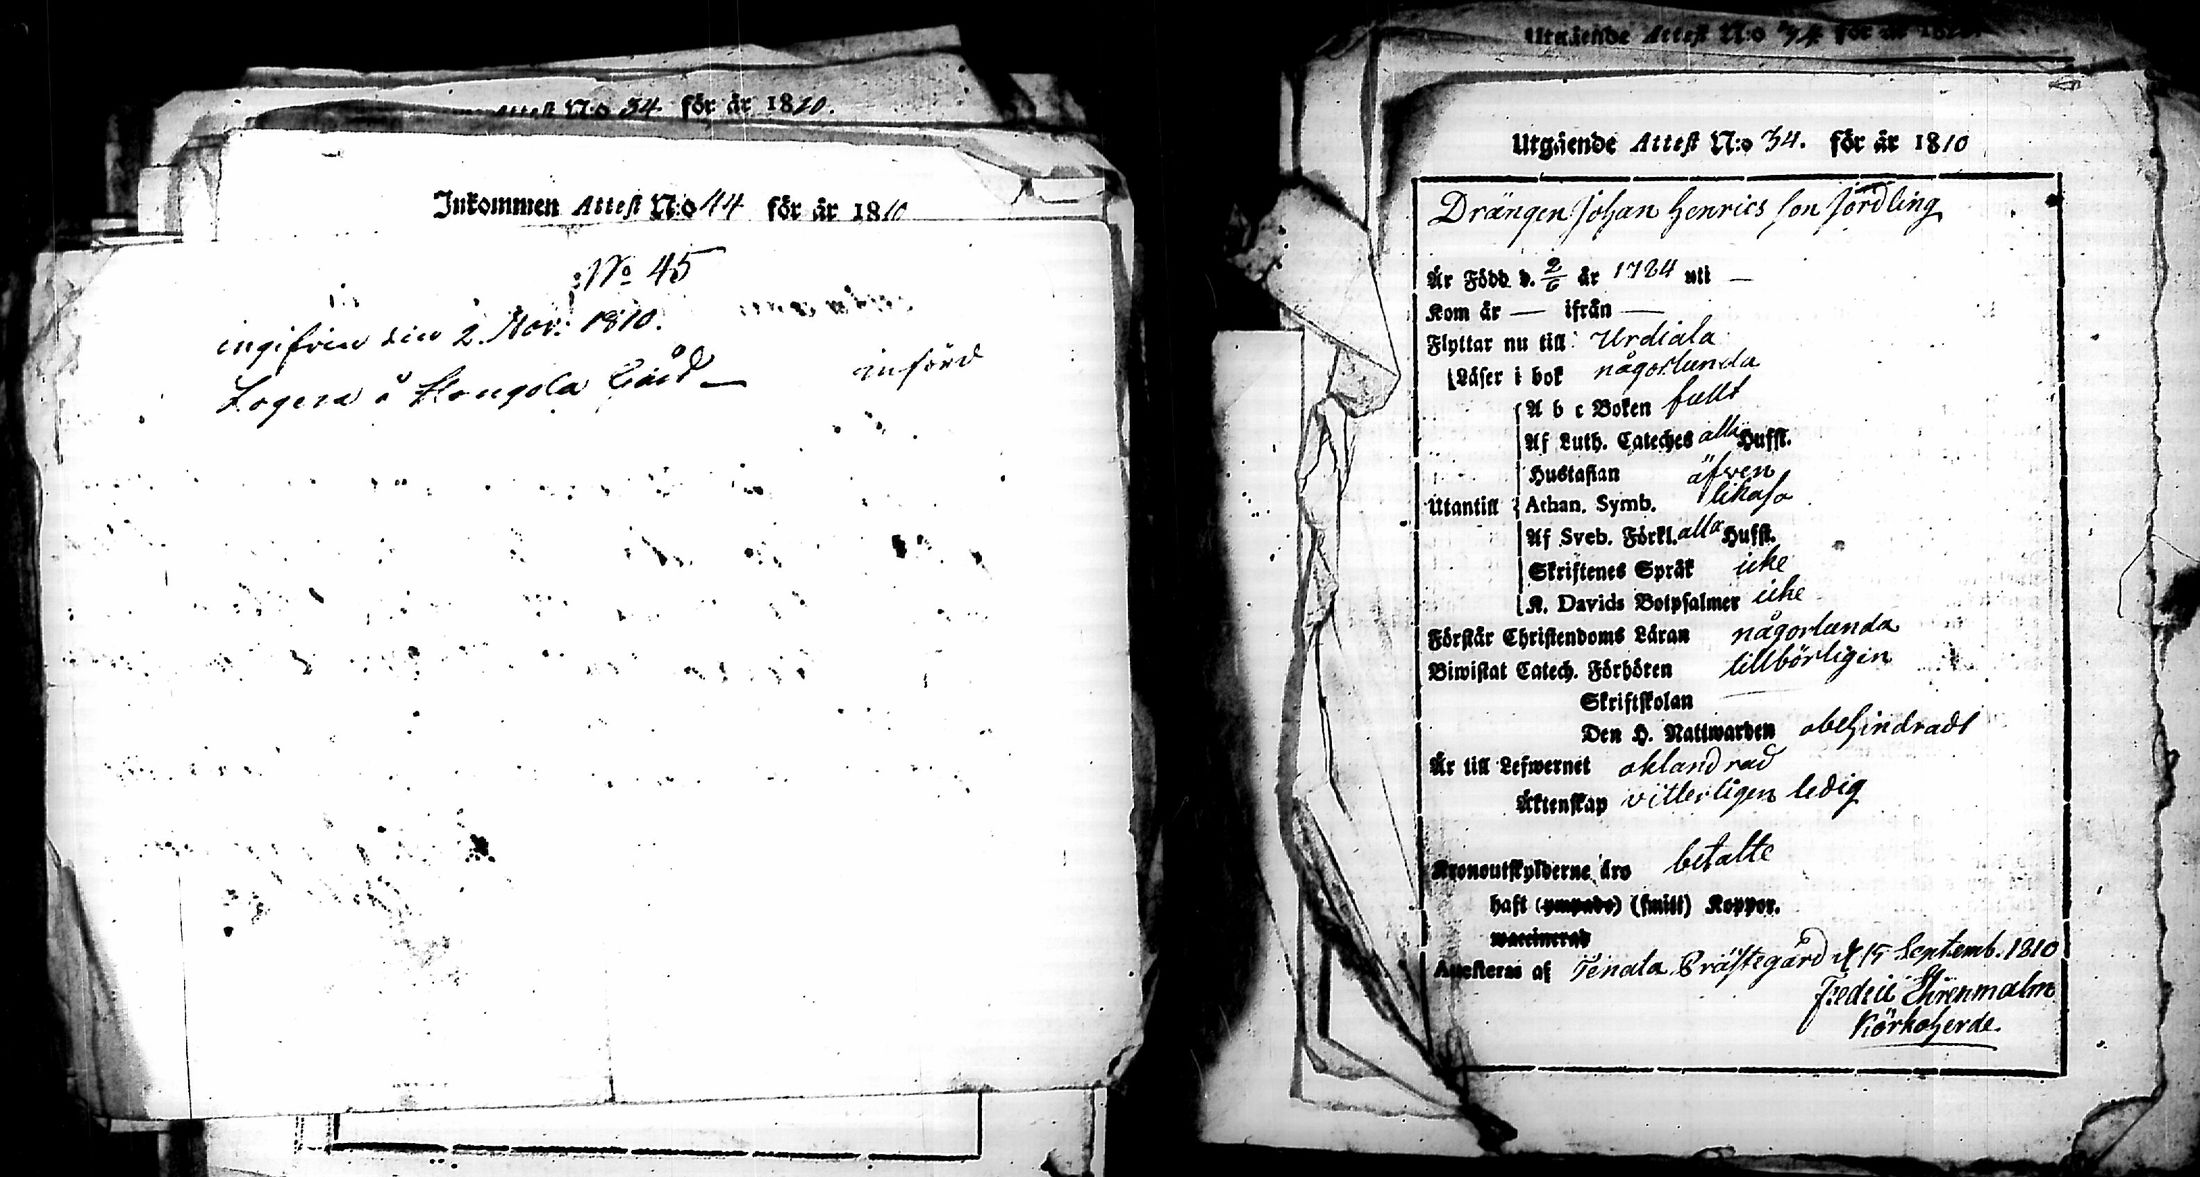 Attest N:o 34 för år 1810.
Inkommen Attest N:o 44 för år 1810
No 45
den 2. Nov: 1810.
införd
Utgående Attest N:o 34 för år 1810
Utgående Attest N:o 34. för år 1810
Drängen Johan Henrics son Jordling
Är Född d. 2/6 år 1784 uti —
Kom år — ifrån —
Flyttar nu till Urdiala
Läser i bok någorlunda
A b c Boken fullt
Af Luth. Cateches alla Hufst.
Hustaflan äfwen
Utantill Athan. Symb. likaså
Af Sveb. Förkl. alla Hufst.
Skriftenes Språk icke
K. Davids Botpsalmer icke
Förstår Christendoms Läran någorlunda
Biwistat Catech. Förhören tillbörligen
Skriftskolan —
Den H. Nattwarden obehindradt
Är till Lefwernet oklandrad
Äktenskap vitterligen ledig
Kronoutskylderne äro betalte
haft (ympade) (smitt) Koppor.
waccinerad
Attesteras af Tenala Prästegård d 15 Septemb. 1810
Fredric Ehrenmalm
Körkoherde.